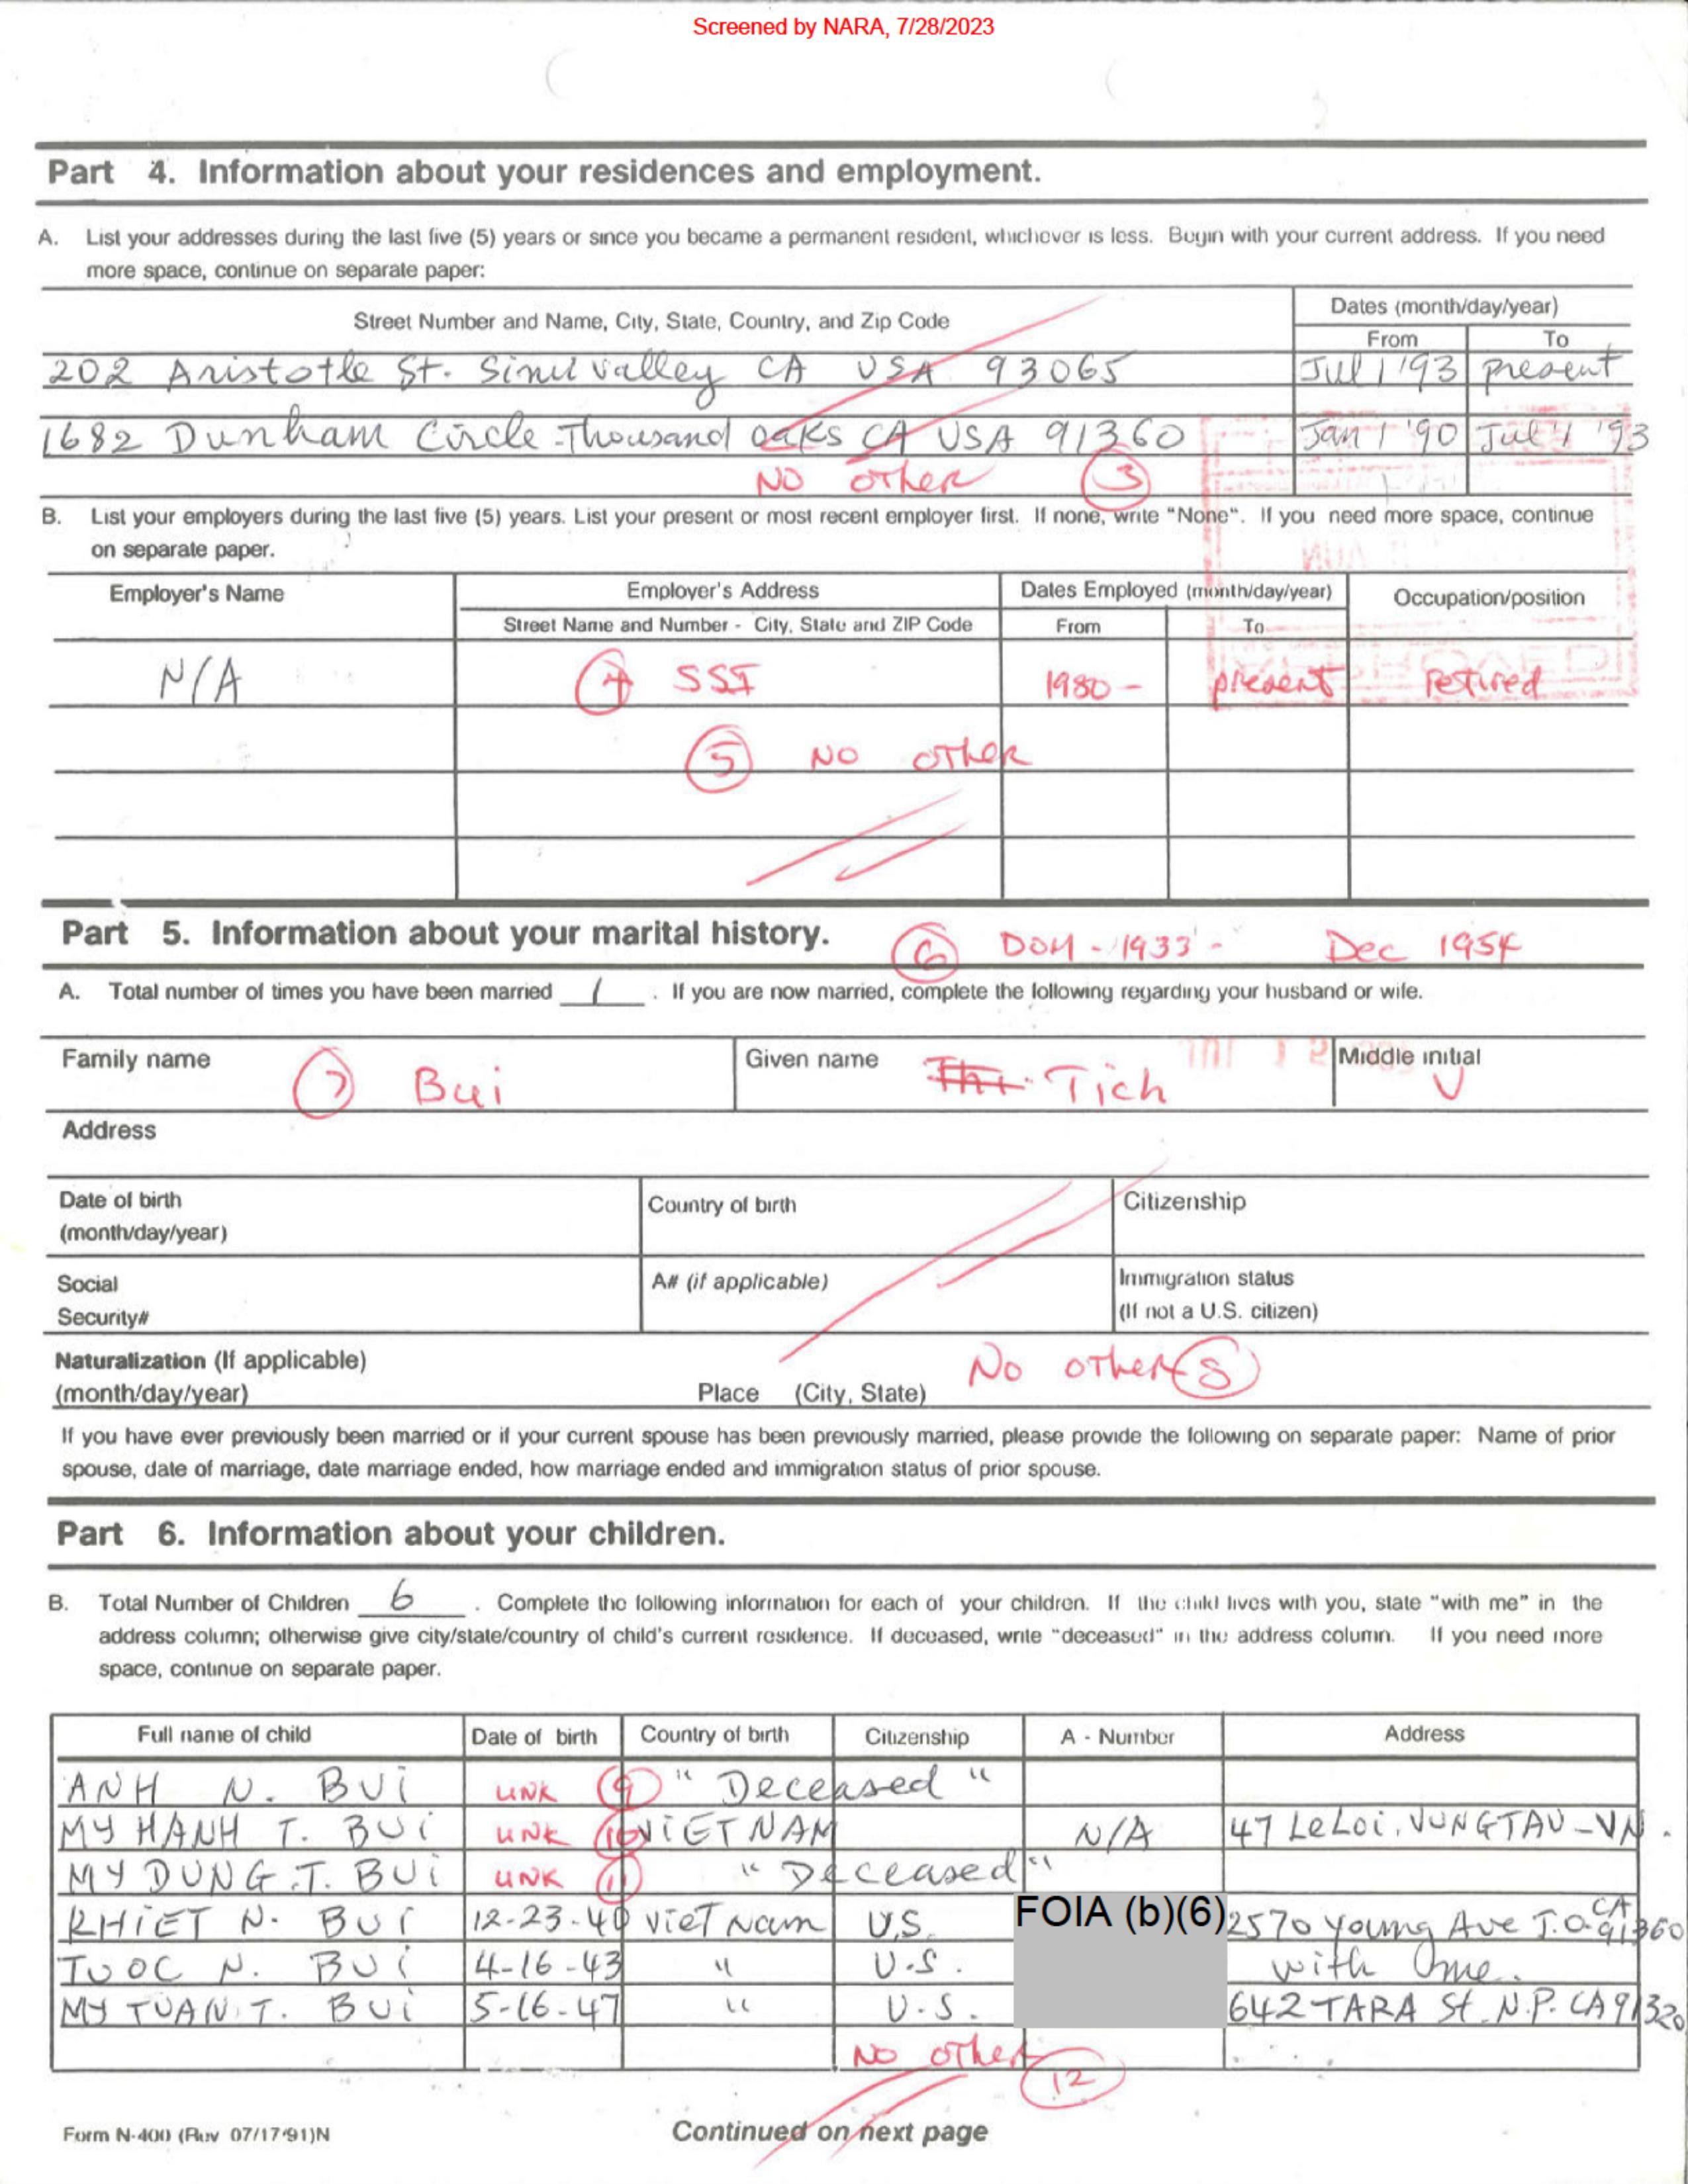 Screened by NARA, 7/28/2023
Part 4. Information about your residences and employment.
A. List your addresses during the last five (5) years or since you became a permanent resident, whichever is less. Begin with your current address. If you need
more space, continue on separate paper:
Street Number and Name, City, State, Country, and Zip Code
Dates (month/day/year)
From To
202 Aristotle St. Simi Valley CA USA 93065 Jul 1 '93 present
1682 Dunham Circle Thousand Oaks CA USA 91360 Jan 1 '90 Jul 1 '93
NO other 3
B. List your employers during the last five (5) years. List your present or most recent employer first. If none, write "None". If you need more space, continue
on separate paper.
Employer's Name Employer's Address Dates Employed (month/day/year) Occupation/position
Street Name and Number - City, State and ZIP Code From To
N/A 4 SSI 1980 - present retired
5 NO other
Part 5. Information about your marital history. 6 DOM - 1933 - Dec 1954
A. Total number of times you have been married 1 . If you are now married, complete the following regarding your husband or wife.
Family name 7 Bui Given name Thi Tich Middle initial V
Address
Date of birth
(month/day/year)
Country of birth
Citizenship
Social
Security#
A# (if applicable)
Immigration status
(If not a U.S. citizen)
Naturalization (If applicable)
(month/day/year) Place (City, State) No other 8
If you have ever previously been married or if your current spouse has been previously married, please provide the following on separate paper: Name of prior
spouse, date of marriage, date marriage ended, how marriage ended and immigration status of prior spouse.
Part 6. Information about your children.
B. Total Number of Children 6 . Complete the following information for each of your children. If the child lives with you, state "with me" in the
address column; otherwise give city/state/country of child's current residence. If deceased, write "deceased" in the address column. If you need more
space, continue on separate paper.
Full name of child Date of birth Country of birth Citizenship A - Number Address
ANH N. BUI UNK 9 "Deceased"
MY HANH T. BUI UNK 10 VIETNAM N/A 47 LeLoi, VUNGTAU-VN.
MY DUNG.T. BUI UNK 11 "Deceased"
KHIET N. BUI 12-23-40 Viet Nam U.S. FOIA (b)(6) 2570 Young Ave T.O. CA 91360
TUOC N. BUI 4-16-43 " U.S. with me.
MY TUAN.T. BUI 5-16-47 " U.S. 642 TARA St. N.P. CA 91320
NO other 12
Form N-400 (Rev 07/17/91)N
Continued on next page